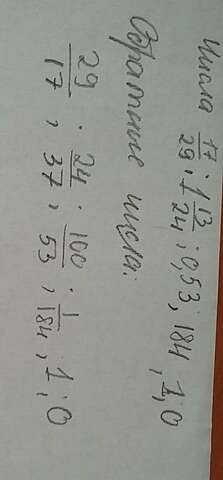 Числа 17/29; 1 13/24; 0,53; 184; 1; 0
Обратные числа:
29/17; 24/37; 100/53; 1/184; 1; 0